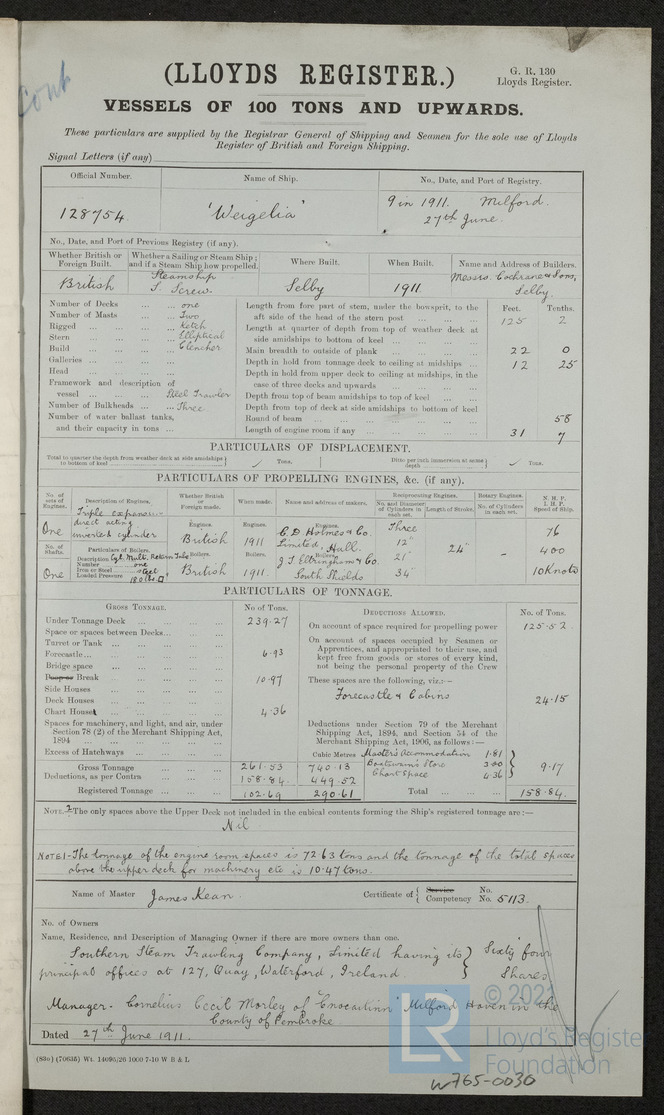 cont
(LLOYDS REGISTER.)
G. R. 130
Lloyds Register.
VESSELS OF 100 TONS AND UPWARDS.
These particulars are supplied by the Registrar General of Shipping and Seamen for the sole use of Lloyds
Register of British and Foreign Shipping.
Signal Letters (if any)
Official Number. Name of Ship. No., Date, and Port of Registry.
128754. 'Weigelia' 9 in 1911. Milford.
27th June.
No., Date, and Port of Previous Registry (if any).
Whether British or Foreign Built. Whether a Sailing or Steam Ship; and if a Steam Ship how propelled. Where Built. When Built. Name and Address of Builders.
British Steamship S. Screw. Selby 1911. Messrs. Cochrane & Sons, Selby.
Number of Decks ... one
Number of Masts ... Two
Rigged ... Ketch
Stern ... Elliptical
Build ... Clencher
Galleries ...
Head ...
Framework and description of
vessel ... Steel Trawler
Number of Bulkheads ... Three
Number of water ballast tanks,
and their capacity in tons ...
Feet. Tenths.
Length from fore part of stem, under the bowsprit, to the
aft side of the head of the stern post ... 125 2
Length at quarter of depth from top of weather deck at
side amidships to bottom of keel ...
Main breadth to outside of plank ... 22 0
Depth in hold from tonnage deck to ceiling at midships ... 12 25
Depth in hold from upper deck to ceiling at midships, in the
case of three decks and upwards ...
Depth from top of beam amidships to top of keel ...
Depth from top of deck at side amidships to bottom of keel
Round of beam ... 58
Length of engine room if any ... 31 7
PARTICULARS OF DISPLACEMENT.
Total to quarter the depth from weather deck at side amidships to bottom of keel Tons. Ditto per inch immersion at same depth Tons.
PARTICULARS OF PROPELLING ENGINES, &c. (if any).
No. of sets of Engines. Description of Engines. Whether British or Foreign made. When made. Name and address of makers. Reciprocating Engines. Rotary Engines. N. H. P.
No. and Diameter of Cylinders in each set. Length of Stroke. No. of Cylinders in each set. I. H. P. Speed of Ship.
One Triple expansion direct acting inverted cylinder Engines. British Engines. 1911 Engines. C. D. Holmes & Co. Limited, Hull. Three 12" 21" 34" 24" - 76
400
10 Knots
No. of Shafts. Particulars of Boilers.
One Description Cyl. Mult. Return Tube
Number one
Iron or Steel steel
Loaded Pressure 180 lbs.
Boilers. British Boilers. 1911. Boilers. J. T. Eltringham & Co. South Shields
PARTICULARS OF TONNAGE.
GROSS TONNAGE. No. of Tons.
Under Tonnage Deck ... 239.27
Space or spaces between Decks ...
Turret or Tank ...
Forecastle ... 6.93
Bridge space ...
Poop or Break ... 10.97
Side Houses ...
Deck Houses ...
Chart House ... 4.36
Spaces for machinery, and light, and air, under
Section 78 (2) of the Merchant Shipping Act,
1894 ...
Excess of Hatchways ...
Cubic Metres
Gross Tonnage ... 261.53 740.13
Deductions, as per Contra ... 158.84. 449.52
Registered Tonnage ... 102.69 290.61
DEDUCTIONS ALLOWED. No. of Tons.
On account of space required for propelling power 125.52.
On account of spaces occupied by Seamen or
Apprentices, and appropriated to their use, and
kept free from goods or stores of every kind,
not being the personal property of the Crew
These spaces are the following, viz.:—
Forecastle & Cabins 24.15
Deductions under Section 79 of the Merchant
Shipping Act, 1894, and Section 54 of the
Merchant Shipping Act, 1906, as follows:—
Master's Accommodation 1.81
Boatswain's Store 3.00
Chart Space 4.36
9.17
Total ... 158.84.
NOTE.2—The only spaces above the Upper Deck not included in the cubical contents forming the Ship's registered tonnage are:—
Nil
NOTE1—The tonnage of the engine room spaces is 72.63 tons and the tonnage of the total spaces
above the upper deck for machinery etc is 10.47 tons.
Name of Master James Kean. Certificate of { Service No.
Competency No. 5113.
No. of Owners
Name, Residence, and Description of Managing Owner if there are more owners than one.
Southern Steam Trawling Company, Limited having its } Sixty four
principal offices at 127, Quay, Waterford, Ireland. Shares
Manager - Cornelius Cecil Morley of "Knocaitinn" Milford Haven in the
County of Pembroke
Dated 27th June 1911.
(830) (70635) Wt. 14095/26 1000 7-10 W B & L
LR
© 2021
Lloyd's Register
Foundation
W765-0030